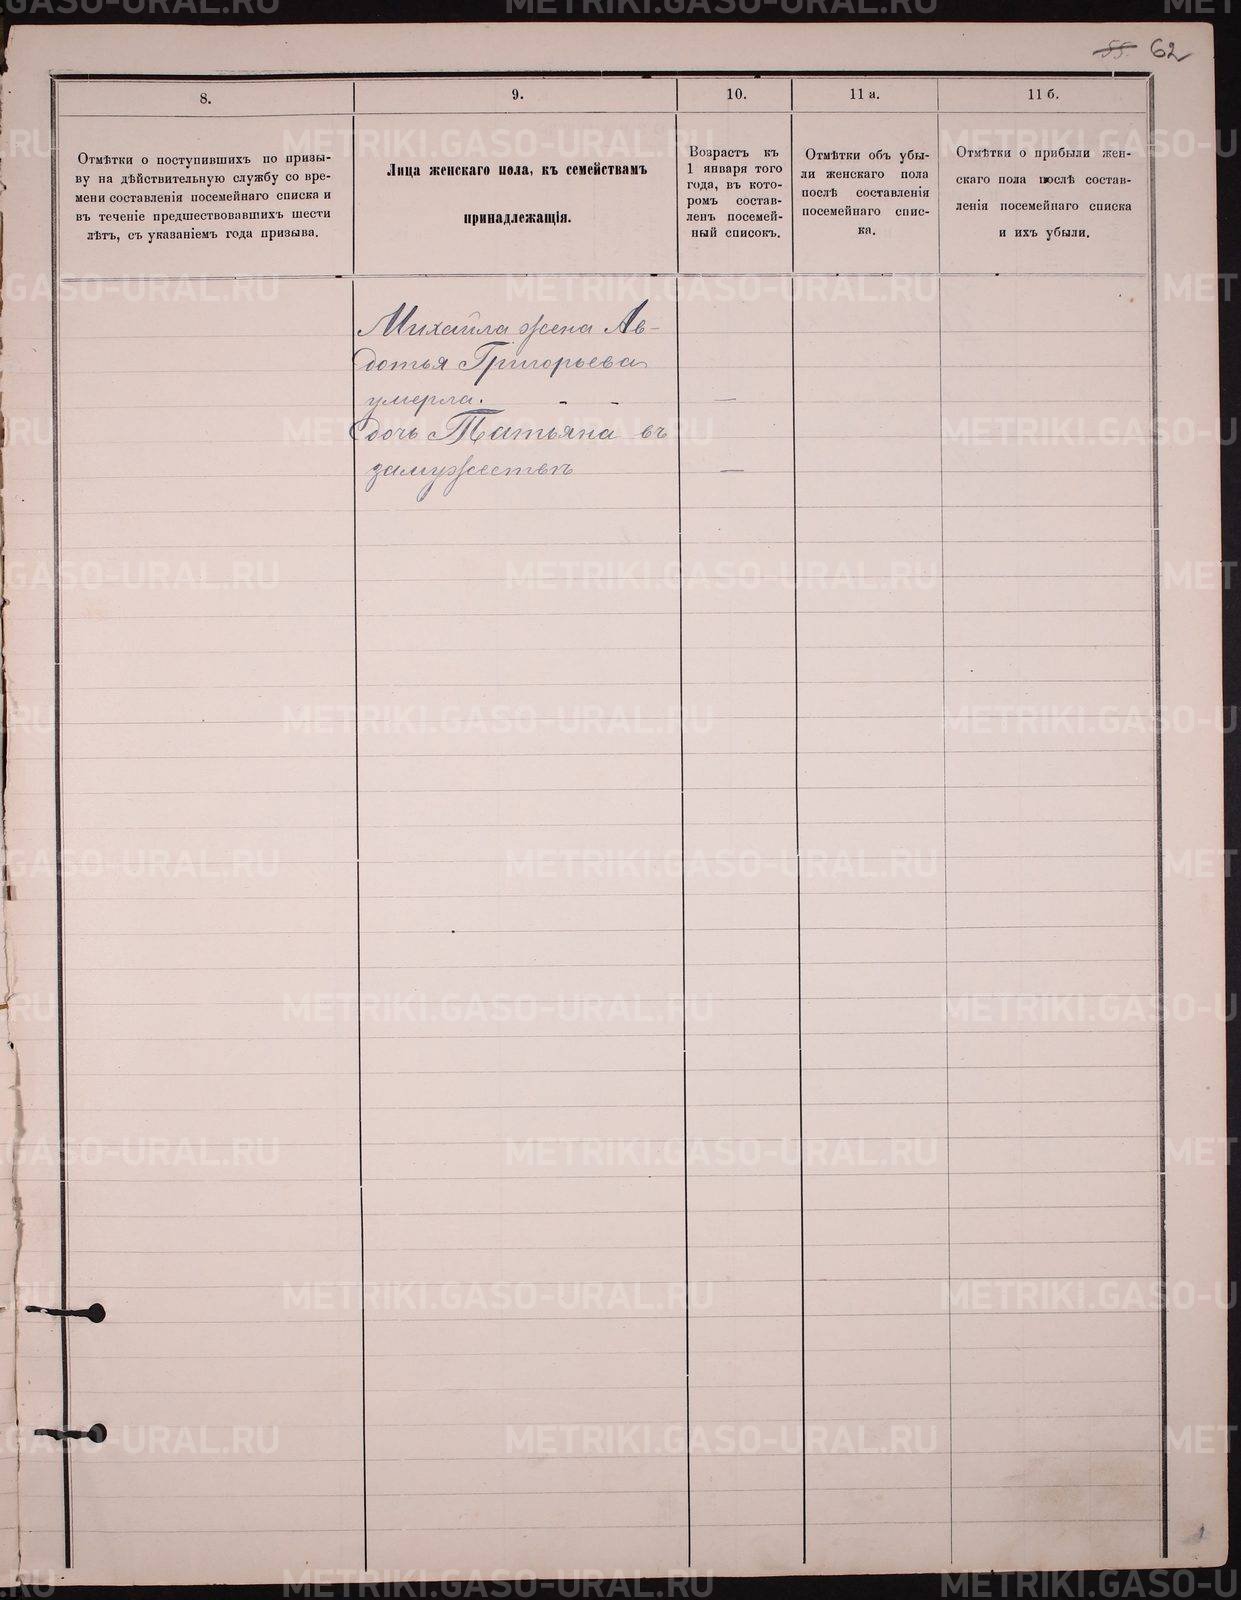 55. 62
8.
Отмѣтки о поступившихъ по призы-
ву на дѣйствительную службу со вре-
мени составленія посемейнаго списка и
въ теченіе предшествовавшихъ шести
лѣтъ, съ указаніемъ года призыва.
9.
Лица женскаго пола, къ семействамъ
принадлежащія.
10.
Возрастъ къ
1 января того
года, въ кото-
ромъ состав-
ленъ посемей-
ный списокъ.
11 а.
Отмѣтки объ убы-
ли женскаго пола
послѣ составленія
посемейнаго спис-
ка.
11 б.
Отмѣтки о прибыли жен-
скаго пола послѣ состав-
ленія посемейнаго списка
и ихъ убыли.
Михаила жена Ав-
дотья Григорьева
умерла. - - —
дочь Татьяна въ
замужествѣ —
METRIKI.GASO-URAL.RU